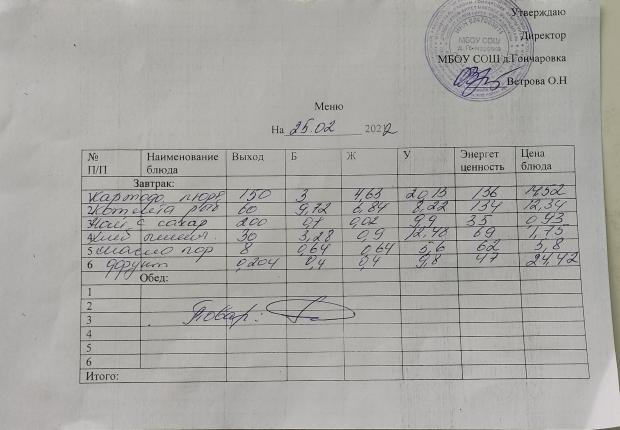 Утверждаю
МБОУ СОШ
д. Гончаровка
Директор
МБОУ СОШ д.Гончаровка
Ветрова О.Н
Меню
На 25.02 2022
№ П/П Наименование блюда Выход Б Ж У Энергет ценность Цена блюда
Завтрак:
Картофо пюре 150 3 4,63 20,13 136 14,52
2 Котлета рыб 60 9,72 6,84 8,22 134 12,34
Чай с сахар 200 0,1 0,02 9,9 35 0,93
4 хлеб пшенич. 30 3,28 0,9 12,48 69 1,75
5 масло пор 8 0,64 0,64 5,6 62 5,8
6 фрукт 0,204 0,4 0,4 9,8 47 24,42
Обед:
1
2
3 Повар:
4
5
6
Итого: